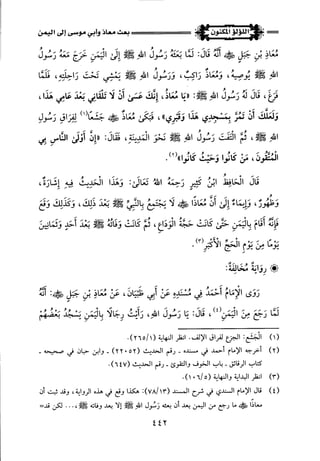 اللؤلؤ المكنون
بعث معاذ وأبي موسى إلى اليمن
مُعَاذِ بْنِ جَبَلٍ ﷺ أَنَّهُ قَالَ: لَمَّا بَعَثَهُ رَسُولُ اللهِ ﷺ إِلَى الْيَمَنِ خَرَجَ مَعَهُ رَسُولُ
اللهِ ﷺ يُوصِيهِ، وَمُعَاذٌ رَاكِبٌ، وَرَسُولُ اللهِ ﷺ يَمْشِي تَحْتَ رَاحِلَتِهِ، فَلَمَّا
فَرَغَ، قَالَ لَهُ رَسُولُ اللهِ ﷺ: «يَا مُعَاذُ، إِنَّكَ عَسَى أَنْ لَا تَلْقَانِي بَعْدَ عَامِي هَذَا،
لَعَلَّكَ أَنْ تَمُرَّ بِمَسْجِدِي هَذَا وَقَبْرِي»، فَبَكَى مُعَاذٌ ﷺ جَشَعًا(١) لِفِرَاقِ رَسُولِ
اللهِ ﷺ، ثُمَّ الْتَفَتَ رَسُولُ اللهِ ﷺ نَحْوَ الْمَدِينَةِ، فَقَالَ: «إِنَّ أَوْلَى النَّاسِ بِي
الْمُتَّقُونَ، مَنْ كَانُوا وَحَيْثُ كَانُوا»(٢).
قَالَ الْحَافِظُ ابْنُ كَثِيرٍ رَحِمَهُ اللهُ تَعَالَى: وَهَذَا الْحَدِيثُ فِيهِ إِشَارَةٌ،
وَظُهُورٌ، وَإِيمَاءٌ إِلَى أَنَّ مُعَاذًا ﷺ لَا يَجْتَمِعُ بِالنَّبِيِّ ﷺ بَعْدَ ذَلِكَ، وَكَذَلِكَ وَقَعَ
فَإِنَّهُ أَقَامَ بِالْيَمَنِ حَتَّى كَانَتْ حَجَّةُ الْوَدَاعِ، ثُمَّ كَانَتْ وَفَاتُهُ ﷺ بَعْدَ أَحَدٍ وَثَمَانِينَ
يَوْمًا مِنْ يَوْمِ الْحَجِّ الْأَكْبَرِ(٣).
رِوَايَةٌ مُخَالِفَةٌ:
رَوَى الْإِمَامُ أَحْمَدُ فِي مُسْنَدِهِ عَنْ أَبِي ظَبْيَانَ، عَنْ مُعَاذِ بْنِ جَبَلٍ ﷺ: أَنَّهُ
لَمَّا رَجَعَ مِنَ الْيَمَنِ(٤)، قَالَ: يَا رَسُولَ اللهِ، رَأَيْتُ رِجَالًا بِالْيَمَنِ يَسْجُدُ بَعْضُهُمْ
(١) الجشع: الجزع لفراق الإلف. انظر النهاية (٢٦٥/١).
(٢) أخرجه الإمام أحمد في مسنده - رقم الحديث (٢٢٠٥٢) - وابن حبان في صحيحه -
كتاب الرقائق - باب الخوف والتقوى - رقم الحديث (٦٤٧).
(٣) انظر البداية والنهاية (١٠٦/٥).
(٤) قال الإمام السندي في شرح المسند (٧٨/١٣): هكذا وقع في هذه الرواية، وقد سبق أن
معاذا ﷺ ما رجع من اليمن بعد أن بعثه رسول الله ﷺ إلا بعد وفاته ﷺ ... لكن قد=
٤٤٢